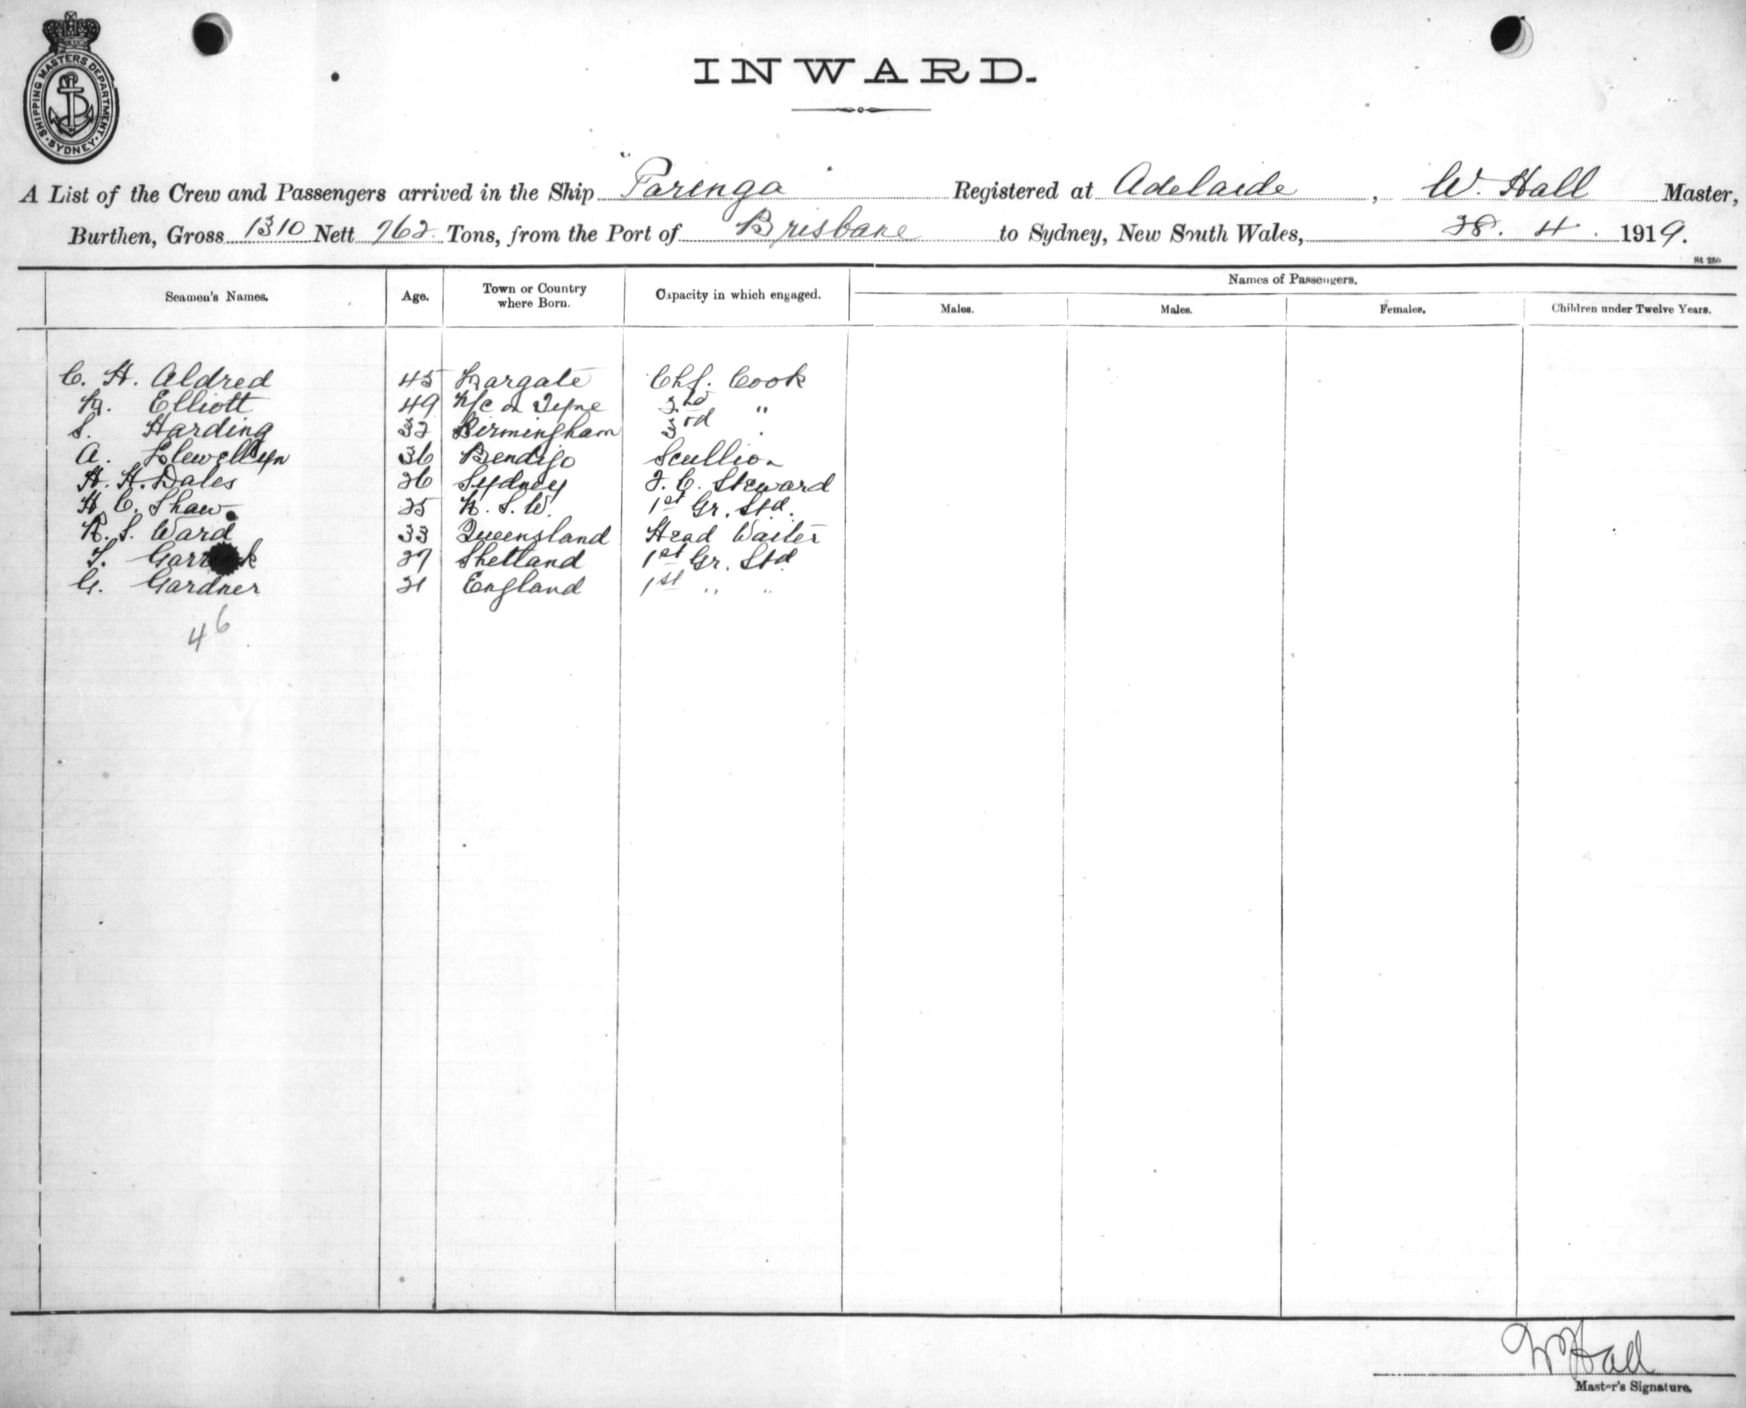 SHIPPING MASTERS DEPARTMENT
SYDNEY
INWARD.
A List of the Crew and Passengers arrived in the Ship "Paringa" Registered at Adelaide, W. Hall Master,
Burthen, Gross 1310 Nett 762 Tons, from the Port of Brisbane to Sydney, New South Wales, 28. 4. 1919.
St 250
Seamen's Names. Age. Town or Country where Born. Capacity in which engaged. Names of Passengers.
Males. Males. Females. Children under Twelve Years.
C. H. Aldred 45 Margate Chf. Cook
M. Elliott 49 N/c on Tyne 2nd "
S. Harding 32 Birmingham 3rd "
A. Llewellyn 36 Bendigo Scullion
H. H. Dales 26 Sydney F. C. Steward
H. C. Shaw 25 N. S. W. 1st Gr. Std.
R. S. Ward 33 Queensland Head Waiter
T. 27 Shetland 1st Gr. Std
G. Gardner 21 England 1st " "
46
W Hall
Master's Signature.